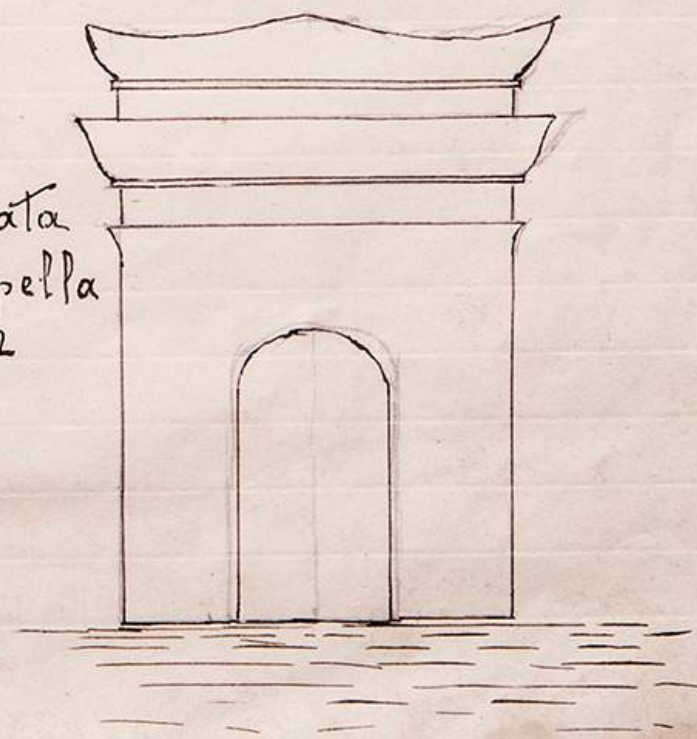 ata
pella